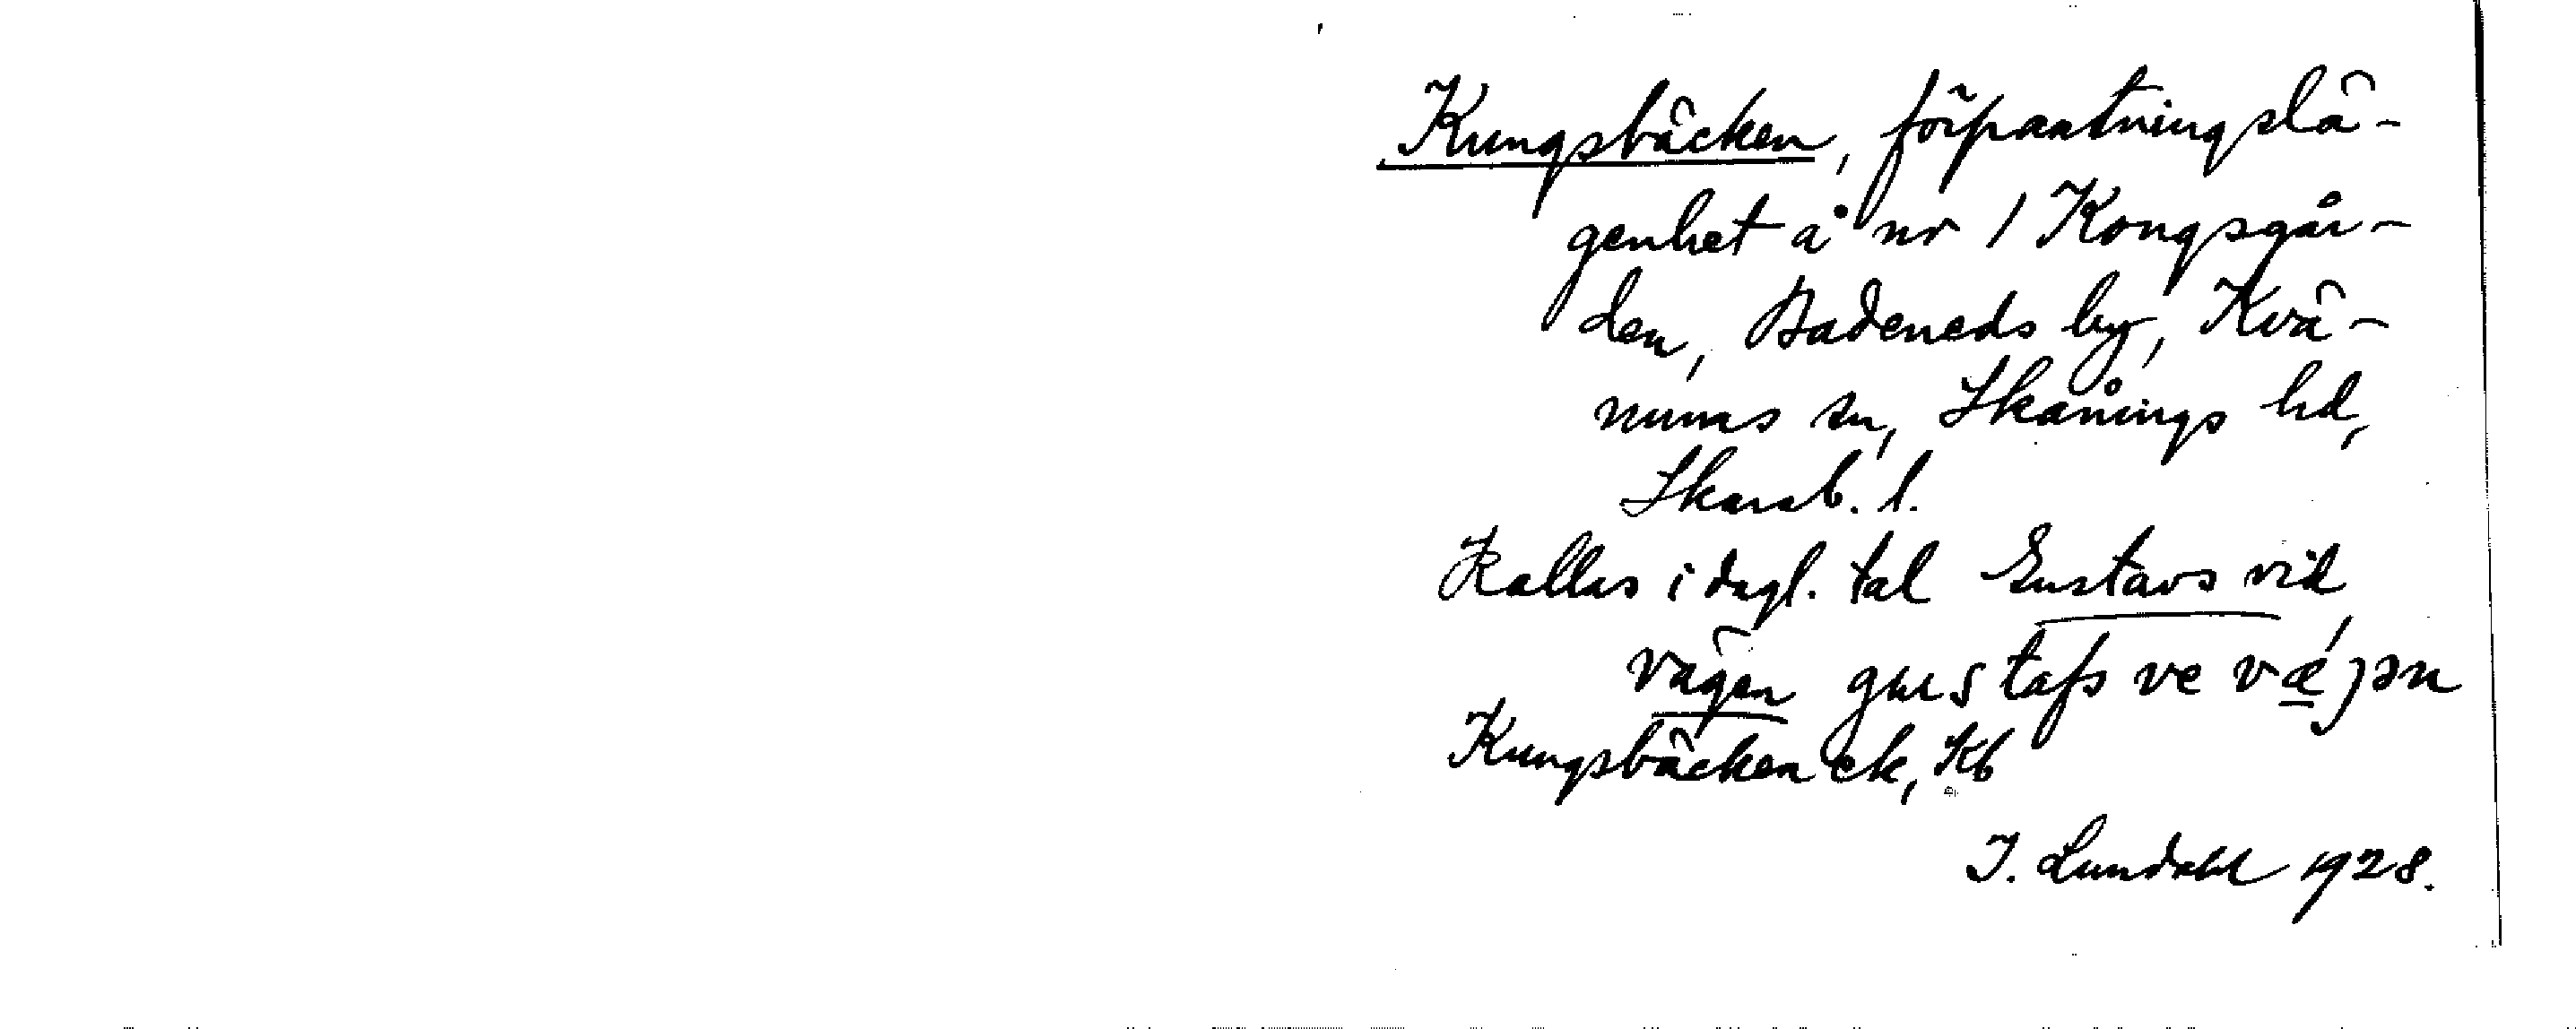 Kungsbäcken, förpaatningslä-
genhet å nr 1 Kongsgår-
den, Badeneds by, Kvä-
nums sn, Skånings hd,
Skarab. l.
Kallas i dagl. tal Gustavs vid
vägen gustafs ve vǽjən
Kungsbäcken ek, Kb
I. Lundahl 1928.